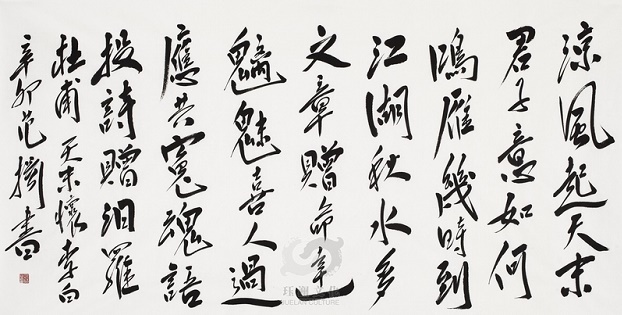 涼風起天末
君子意如何
鴻雁幾時到
江湖秋水多
文章贈命達
魑魅喜人過
應共冤魂語
投詩贈汨羅
杜甫 天末懷李白
辛卯范書